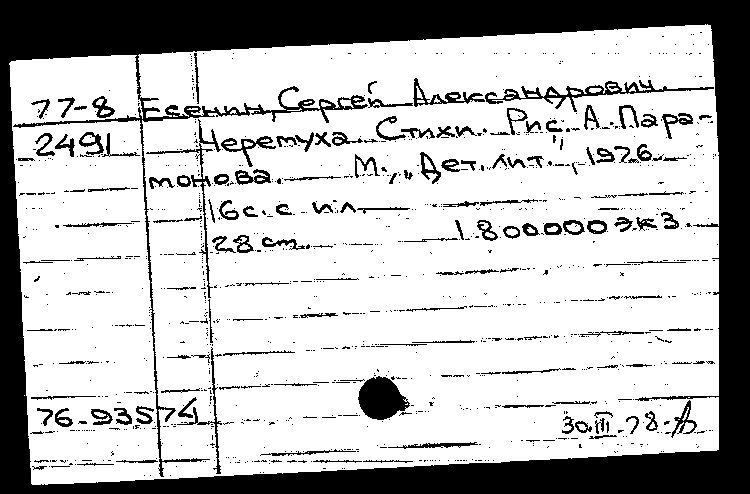 77-8 Есенин, Сергей Александрович.
2491 Черемуха. Стихи. Рис. А. Пара-
монова. М., „Дет. лит.", 1976
16 с. с ил.
28 cm. 1.800000 экз.
76-93574
30.III.78